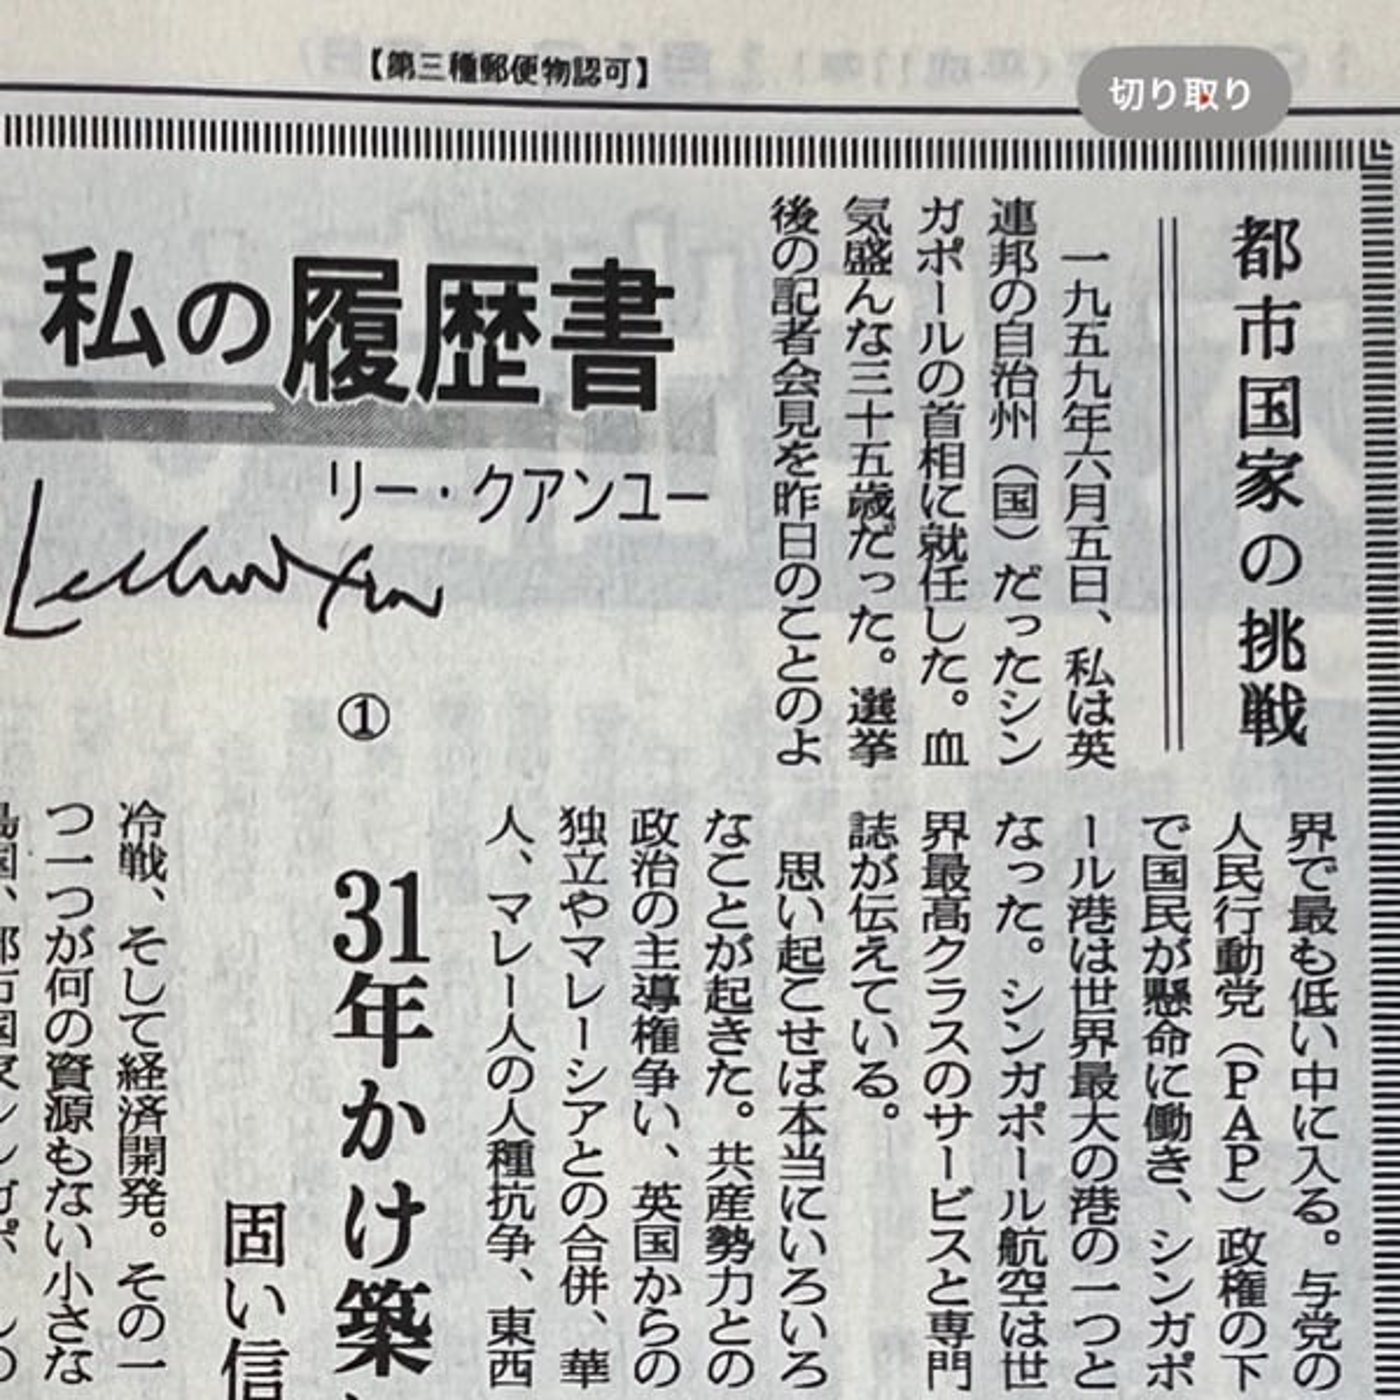 【第三種郵便物認可】
切り取り
都市国家の挑戦
一九五九年六月五日、私は英
連邦の自治州（国）だったシン
ガポールの首相に就任した。血
気盛んな三十五歳だった。選挙
後の記者会見を昨日のことのよ
私の履歴書
リー・クアンユー
①
界で最も低い中に入る。与党の
人民行動党（PAP）政権の下
で国民が懸命に働き、シンガポ
ール港は世界最大の港の一つと
なった。シンガポール航空は世
界最高クラスのサービスと専門
誌が伝えている。
思い起こせば本当にいろいろ
なことが起きた。共産勢力との
政治の主導権争い、英国からの
独立やマレーシアとの合併、華
人、マレー人の人種抗争、東西
31年かけ築
固い信
冷戦、そして経済開発。その一
つ一つが何の資源もない小さな